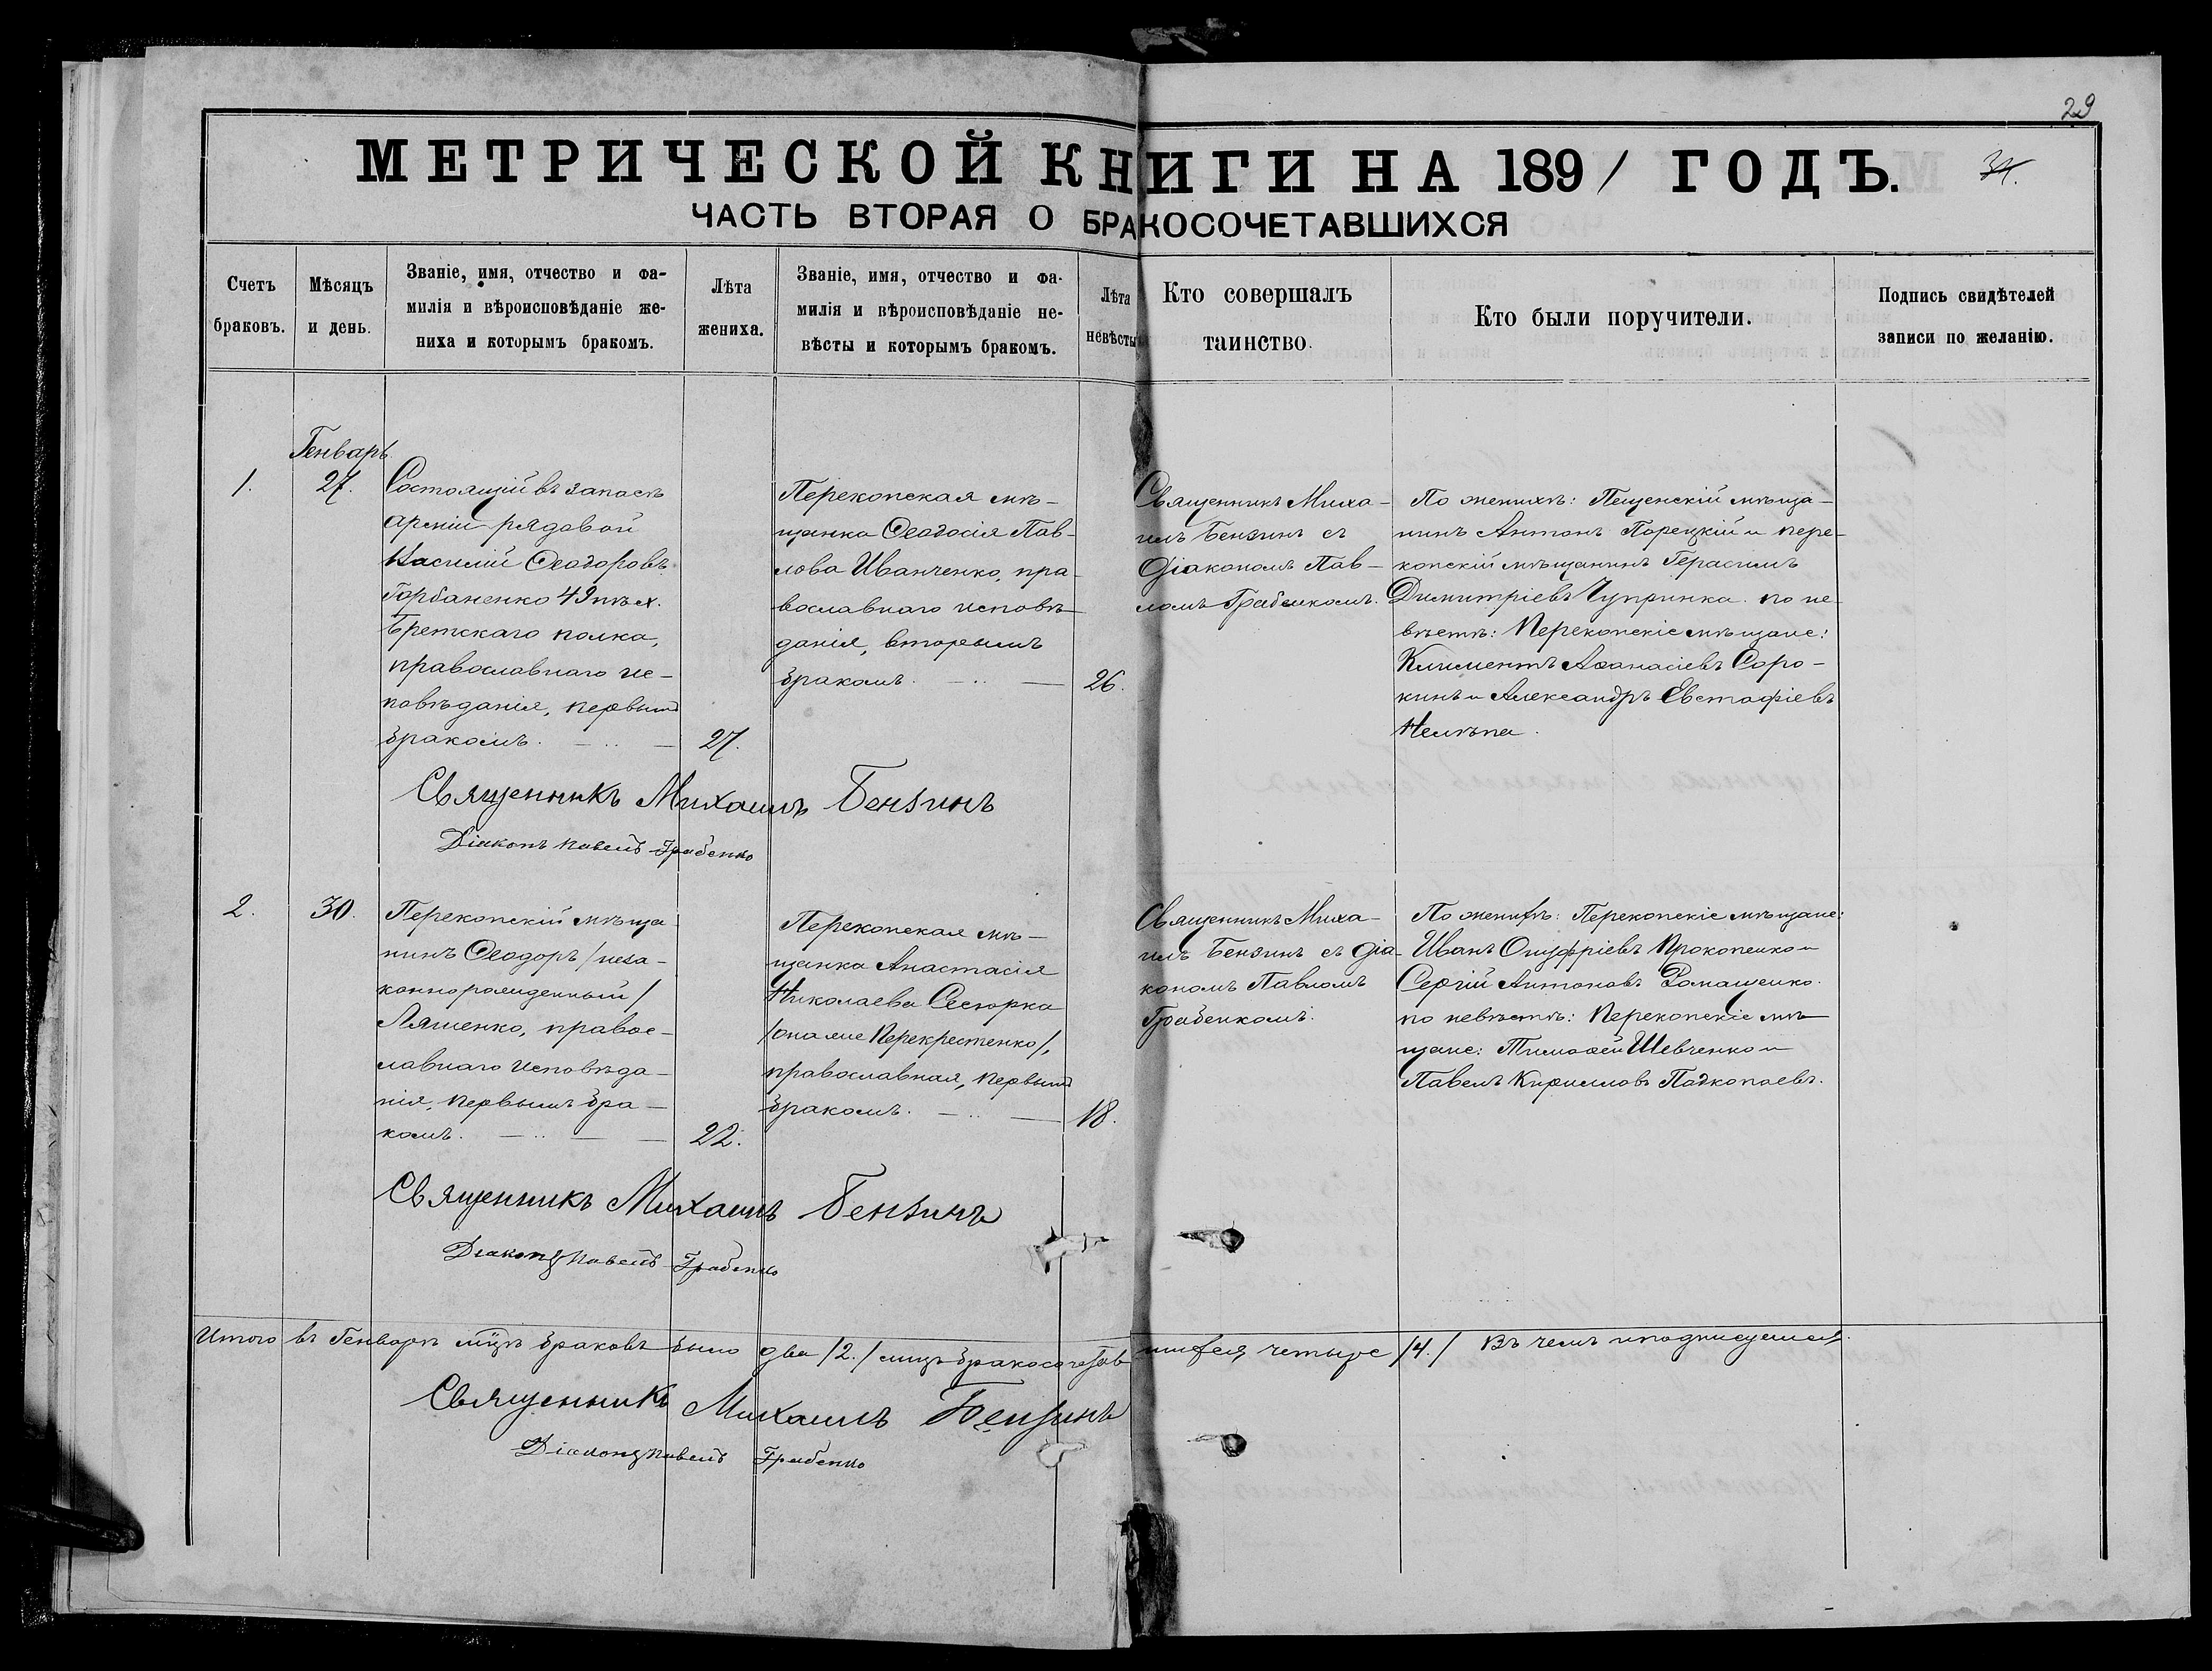 29
МЕТРИЧЕСКОЙ КНИГИ НА 1891 ГОДЪ.
31.
ЧАСТЬ ВТОРАЯ О БРАКОСОЧЕТАВШИХСЯ
Счетъ
браковъ.
Мѣсяцъ
и день.
Званіе, имя, отчество и фа-
милія и вѣроисповѣданіе же-
ниха и которымъ бракомъ.
Лѣта
жениха.
Званіе, имя, отчество и фа-
милія и вѣроисповѣданіе не-
вѣсты и которымъ бракомъ.
Лѣта
невѣсты
Кто совершалъ
таинство.
Кто были поручители.
Подпись свидѣтелей
записи по желанію.
1.
Генварь
27.
Состоящій въ запасѣ
арміи рядовой
Василій Ѳеодоровъ
Горбаненко 49 пѣх.
Бретскаго полка,
православнаго ис-
повѣданія, первымъ
бракомъ.
27.
Перекопская мѣ-
щанка Ѳеодосія Пав-
лова Иванченко, пра-
вославнаго исповѣ-
данія, вторымъ
бракомъ.
26.
Священникъ Миха-
илъ Бензинъ съ
Діакономъ Пав-
ломъ Грабенкомъ.
По женихѣ: мѣща-
нинъ Антонъ Порецкій и пере-
копскій мѣщанинъ Герасимъ
Димитріевъ Чупринка. по не-
вѣстѣ: Перекопскіе мѣщане:
Климентъ Аѳанасіевъ Соро-
кинъ и Александръ Евстафіевъ
Нелѣпа.
Священникъ Михаилъ Бензинъ
Діаконъ Павелъ Грабенко
2.
30.
Перекопскій мѣща-
нинъ Ѳеодоръ /неза-
коннорожденный/
Ляшенко, правос-
лавнаго исповѣда-
нія, первымъ бра-
комъ.
22.
Перекопская мѣ-
щанка Анастасія
Николаева Сесюрка
/она же Перекрестенко/,
православная, первымъ
бракомъ.
18.
Священникъ Миха-
илъ Бензинъ съ діа-
кономъ Павломъ
Грабенкомъ.
По женихѣ: Перекопскіе мѣщане:
Иванъ Онуфріевъ Прокопенко и
Сергій Антоновъ Ромащенко.
по невѣстѣ: Перекопскіе мѣ-
щане: Тимоѳей Шевченко и
Павелъ Кирилловъ Подкопаевъ.
Священникъ Михаилъ Бензинъ
Діаконъ Павелъ Грабенко
Итого въ Генварѣ мцѣ браковъ было два /2./ лицъ бракосочетав шихся четыре /4./ Въ чемъ и подписуемся.
Священникъ Михаилъ Бензинъ
Діаконъ Павелъ Грабенко